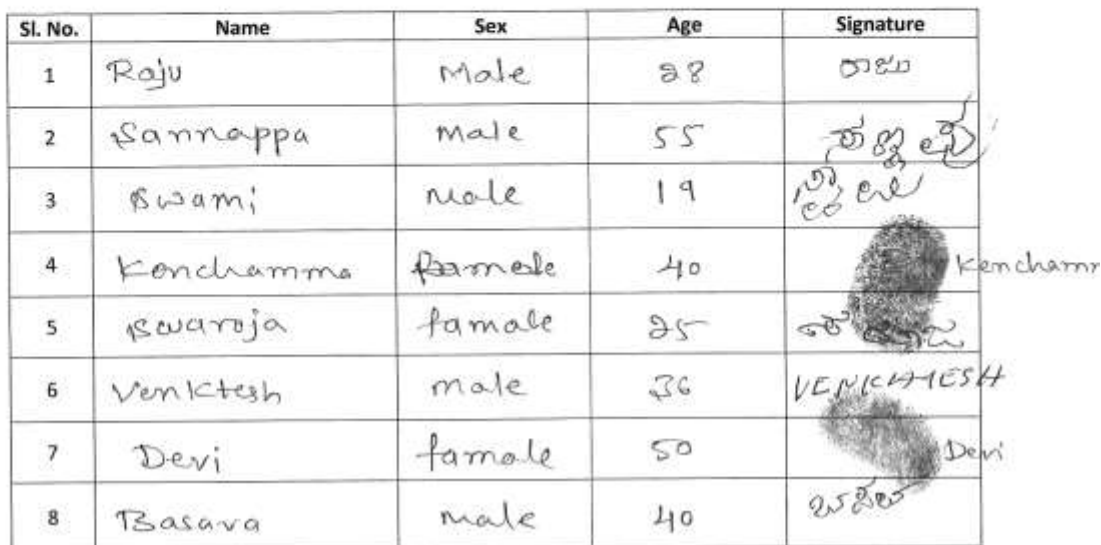 Sl. No. Name Sex Age Signature
1 Raju Male 28 ರಾಜು
2 Sannappa male 55
3 Swami Male 19
4 Kenchamma famale 40 Kenchamm
5 Swaroja famale 25
6 Venktesh male 36 VENKATESH
7 Devi famale 50 Devi
8 Basava male 40 ಬಸವ